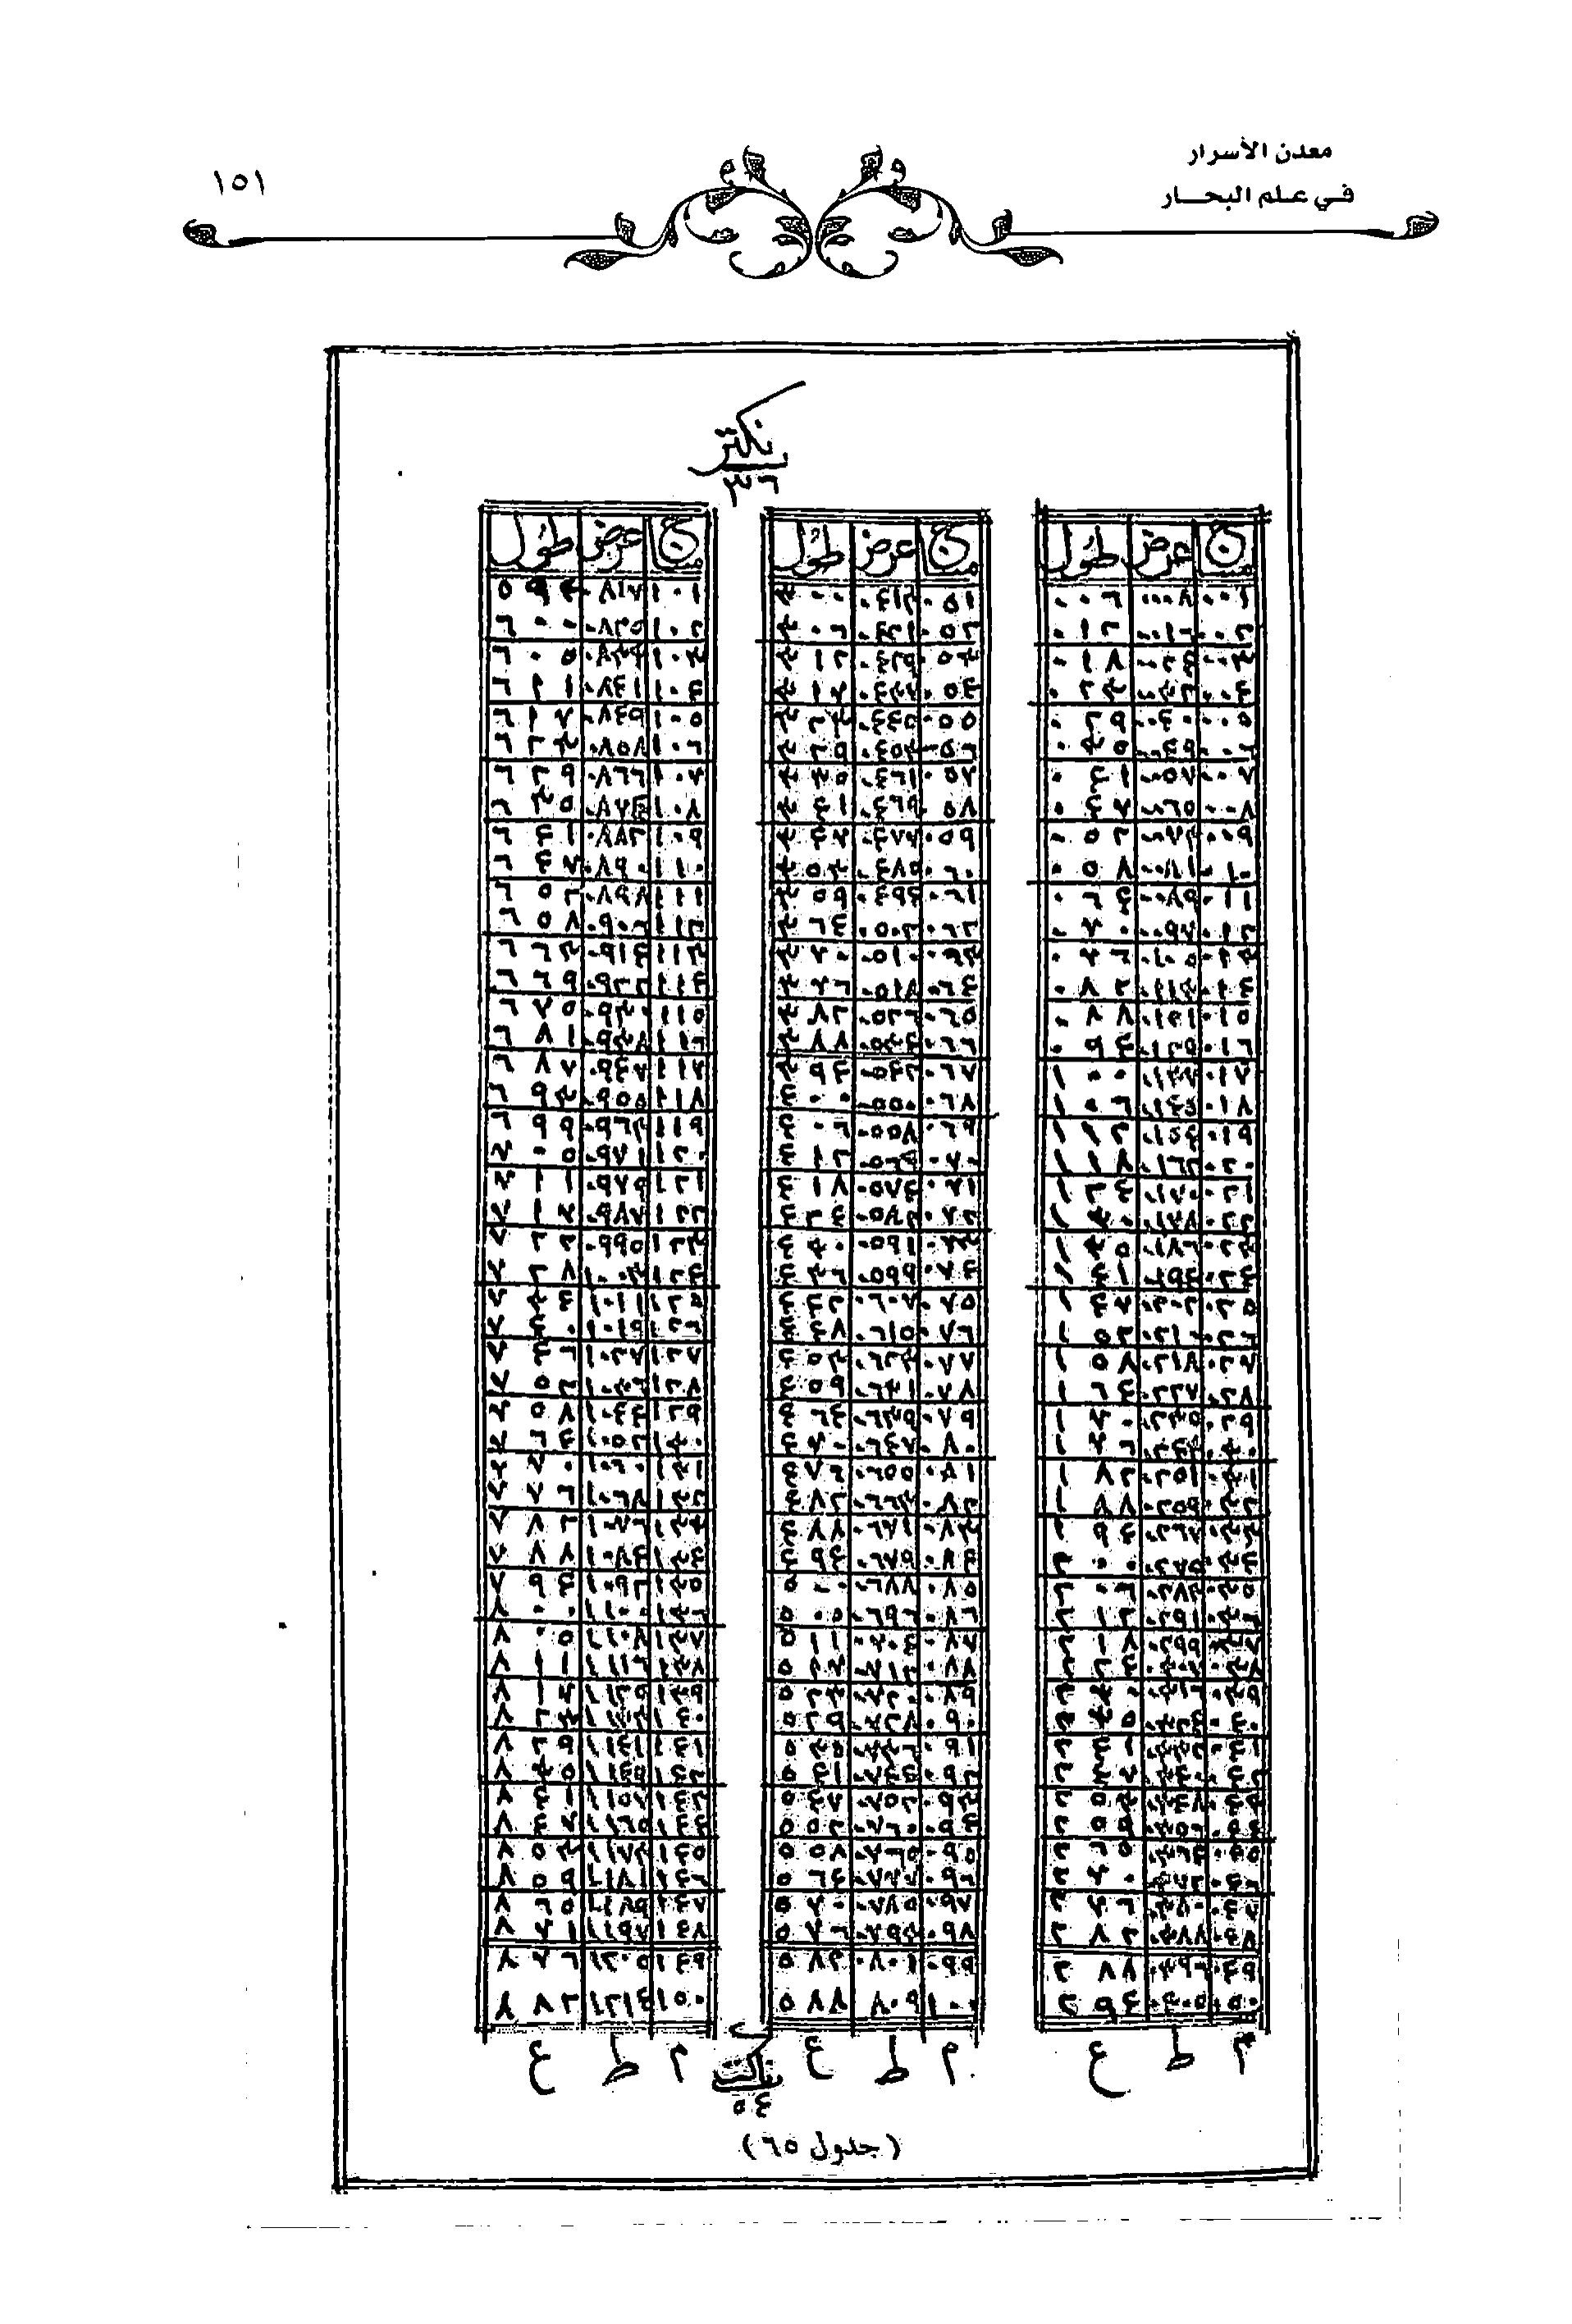 معدن الأسرار
في علم البحـــار
١٥١
نكتر
٣٦
م عرض طول
٠٠١ ٠٠٠٨ ٠٠٦
٠٠٢ ٠٠١٦ ٠١٢
٠٠٣ ٠٠٢٤ ٠١٨
٠٠٤ ٠٠٣٢ ٠٢٣
٠٠٥ ٠٠٤٠ ٠٢٩
٠٠٦ ٠٠٤٩ ٠٣٥
٠٠٧ ٠٠٥٧ ٠٤١
٠٠٨ ٠٠٦٥ ٠٤٧
٠٠٩ ٠٠٧٣ ٠٥٢
٠١٠ ٠٠٨١ ٠٥٨
٠١١ ٠٠٨٩ ٠٦٤
٠١٢ ٠٠٩٧ ٠٧٠
٠١٣ ٠١٠٥ ٠٧٦
٠١٤ ٠١١٣ ٠٨٢
٠١٥ ٠١٢١ ٠٨٨
٠١٦ ٠١٢٩ ٠٩٤
٠١٧ ٠١٣٧ ١٠٠
٠١٨ ٠١٤٥ ١٠٦
٠١٩ ٠١٥٤ ١١٢
٠٢٠ ٠١٦٢ ١١٨
٠٢١ ٠١٧٠ ١٢٤
٠٢٢ ٠١٧٨ ١٣٠
٠٢٣ ٠١٨٦ ١٣٥
٠٢٤ ٠١٩٤ ١٤١
٠٢٥ ٠٢٠٢ ١٤٧
٠٢٦ ٠٢١٠ ١٥٢
٠٢٧ ٠٢١٨ ١٥٨
٠٢٨ ٠٢٢٧ ١٦٤
٠٢٩ ٠٢٣٥ ١٧٠
٠٣٠ ٠٢٤٣ ١٧٦
٠٣١ ٠٢٥١ ١٨٢
٠٣٢ ٠٢٥٩ ١٨٨
٠٣٣ ٠٢٦٧ ١٩٤
٠٣٤ ٠٢٧٥ ٢٠٠
٠٣٥ ٠٢٨٣ ٢٠٦
٠٣٦ ٠٢٩١ ٢١٢
٠٣٧ ٠٢٩٩ ٢١٨
٠٣٨ ٠٣٠٧ ٢٢٤
٠٣٩ ٠٣١٦ ٢٣٠
٠٤٠ ٠٣٢٤ ٢٣٥
٠٤١ ٠٣٣٢ ٢٤١
٠٤٢ ٠٣٤٠ ٢٤٧
٠٤٣ ٠٣٤٨ ٢٥٣
٠٤٤ ٠٣٥٦ ٢٥٩
٠٤٥ ٠٣٦٤ ٢٦٥
٠٤٦ ٠٣٧٢ ٢٧٠
٠٤٧ ٠٣٨٠ ٢٧٦
٠٤٨ ٠٣٨٨ ٢٨٢
٠٤٩ ٠٣٩٦ ٢٨٨
٠٥٠ ٠٤٠٥ ٢٩٤
م ط ع
م عرض طول
٠٥١ ٠٤١٣ ٣٠٠
٠٥٢ ٠٤٢١ ٣٠٦
٠٥٣ ٠٤٢٩ ٣١٢
٠٥٤ ٠٤٣٧ ٣١٧
٠٥٥ ٠٤٤٥ ٣٢٣
٠٥٦ ٠٤٥٣ ٣٢٩
٠٥٧ ٠٤٦١ ٣٣٥
٠٥٨ ٠٤٦٩ ٣٤١
٠٥٩ ٠٤٧٧ ٣٤٧
٠٦٠ ٠٤٨٥ ٣٥٣
٠٦١ ٠٤٩٤ ٣٥٩
٠٦٢ ٠٥٠٢ ٣٦٤
٠٦٣ ٠٥١٠ ٣٧٠
٠٦٤ ٠٥١٨ ٣٧٦
٠٦٥ ٠٥٢٦ ٣٨٢
٠٦٦ ٠٥٣٤ ٣٨٨
٠٦٧ ٠٥٤٢ ٣٩٤
٠٦٨ ٠٥٥٠ ٤٠٠
٠٦٩ ٠٥٥٨ ٤٠٦
٠٧٠ ٠٥٦٦ ٤١٢
٠٧١ ٠٥٧٤ ٤١٨
٠٧٢ ٠٥٨٢ ٤٢٤
٠٧٣ ٠٥٩١ ٤٣٠
٠٧٤ ٠٥٩٩ ٤٣٦
٠٧٥ ٠٦٠٧ ٤٤٢
٠٧٦ ٠٦١٥ ٤٤٨
٠٧٧ ٠٦٢٣ ٤٥٣
٠٧٨ ٠٦٣١ ٤٥٩
٠٧٩ ٠٦٣٩ ٤٦٤
٠٨٠ ٠٦٤٧ ٤٧٠
٠٨١ ٠٦٥٥ ٤٧٦
٠٨٢ ٠٦٦٣ ٤٨٢
٠٨٣ ٠٦٧١ ٤٨٨
٠٨٤ ٠٦٧٩ ٤٩٤
٠٨٥ ٠٦٨٨ ٥٠٠
٠٨٦ ٠٦٩٦ ٥٠٥
٠٨٧ ٠٧٠٤ ٥١١
٠٨٨ ٠٧١٢ ٥١٧
٠٨٩ ٠٧٢٠ ٥٢٣
٠٩٠ ٠٧٢٨ ٥٢٩
٠٩١ ٠٧٣٦ ٥٣٥
٠٩٢ ٠٧٤٤ ٥٤١
٠٩٣ ٠٧٥٢ ٥٤٧
٠٩٤ ٠٧٦٠ ٥٥٢
٠٩٥ ٠٧٦٥ ٥٥٨
٠٩٦ ٠٧٧٧ ٥٦٤
٠٩٧ ٠٧٨٥ ٥٧٠
٠٩٨ ٠٧٩٣ ٥٧٦
٠٩٩ ٠٨٠١ ٥٨٢
١٠٠ ٨٠٩ ٥٨٨
م ط ع
م عرض طول
١٠١ ٠٨١٧ ٥٩٤
١٠٢ ٠٨٢٥ ٦٠٠
١٠٣ ٠٨٣٣ ٦٠٥
١٠٤ ٠٨٤١ ٦١١
١٠٥ ٠٨٤٩ ٦١٧
١٠٦ ٠٨٥٨ ٦٢٣
١٠٧ ٠٨٦٦ ٦٢٩
١٠٨ ٠٨٧٤ ٦٣٥
١٠٩ ٠٨٨٢ ٦٤١
١١٠ ٠٨٩٠ ٦٤٧
١١١ ٠٨٩٨ ٦٥٢
١١٢ ٠٩٠٦ ٦٥٨
١١٣ ٠٩١٤ ٦٦٣
١١٤ ٠٩٢٢ ٦٦٩
١١٥ ٠٩٣٠ ٦٧٥
١١٦ ٠٩٣٨ ٦٨١
١١٧ ٠٩٤٧ ٦٨٧
١١٨ ٠٩٥٥ ٦٩٣
١١٩ ٠٩٦٣ ٦٩٩
١٢٠ ٠٩٧١ ٧٠٥
١٢١ ٠٩٧٩ ٧١١
١٢٢ ٠٩٨٧ ٧١٧
١٢٣ ٠٩٩٥ ٧٢٢
١٢٤ ١٠٠٣ ٧٢٨
١٢٥ ١٠١١ ٧٣٤
١٢٦ ١٠١٩ ٧٤٠
١٢٧ ١٠٢٧ ٧٤٦
١٢٨ ١٠٣٦ ٧٥٢
١٢٩ ١٠٤٤ ٧٥٨
١٣٠ ١٠٥٢ ٧٦٤
١٣١ ١٠٦٠ ٧٧٠
١٣٢ ١٠٦٨ ٧٧٦
١٣٣ ١٠٧٦ ٧٨٢
١٣٤ ١٠٨٤ ٧٨٨
١٣٥ ١٠٩٢ ٧٩٤
١٣٦ ١١٠٠ ٨٠٠
١٣٧ ١١٠٨ ٨٠٥
١٣٨ ١١١٦ ٨١١
١٣٩ ١١٢٩ ٨١٧
١٤٠ ١١٣٣ ٨٢٣
١٤١ ١١٤١ ٨٢٩
١٤٢ ١١٤٩ ٨٣٥
١٤٣ ١١٥٧ ٨٤١
١٤٤ ١١٦٥ ٨٤٧
١٤٥ ١١٧٣ ٨٥٣
١٤٦ ١١٨١ ٨٥٩
١٤٧ ١١٨٩ ٨٦٥
١٤٨ ١١٩٧ ٨٧١
١٤٩ ١٢٠٥ ٨٧٦
١٥٠ ١٢١٤ ٨٨٢
م ط ع
٥٤
(جدول ٦٥)